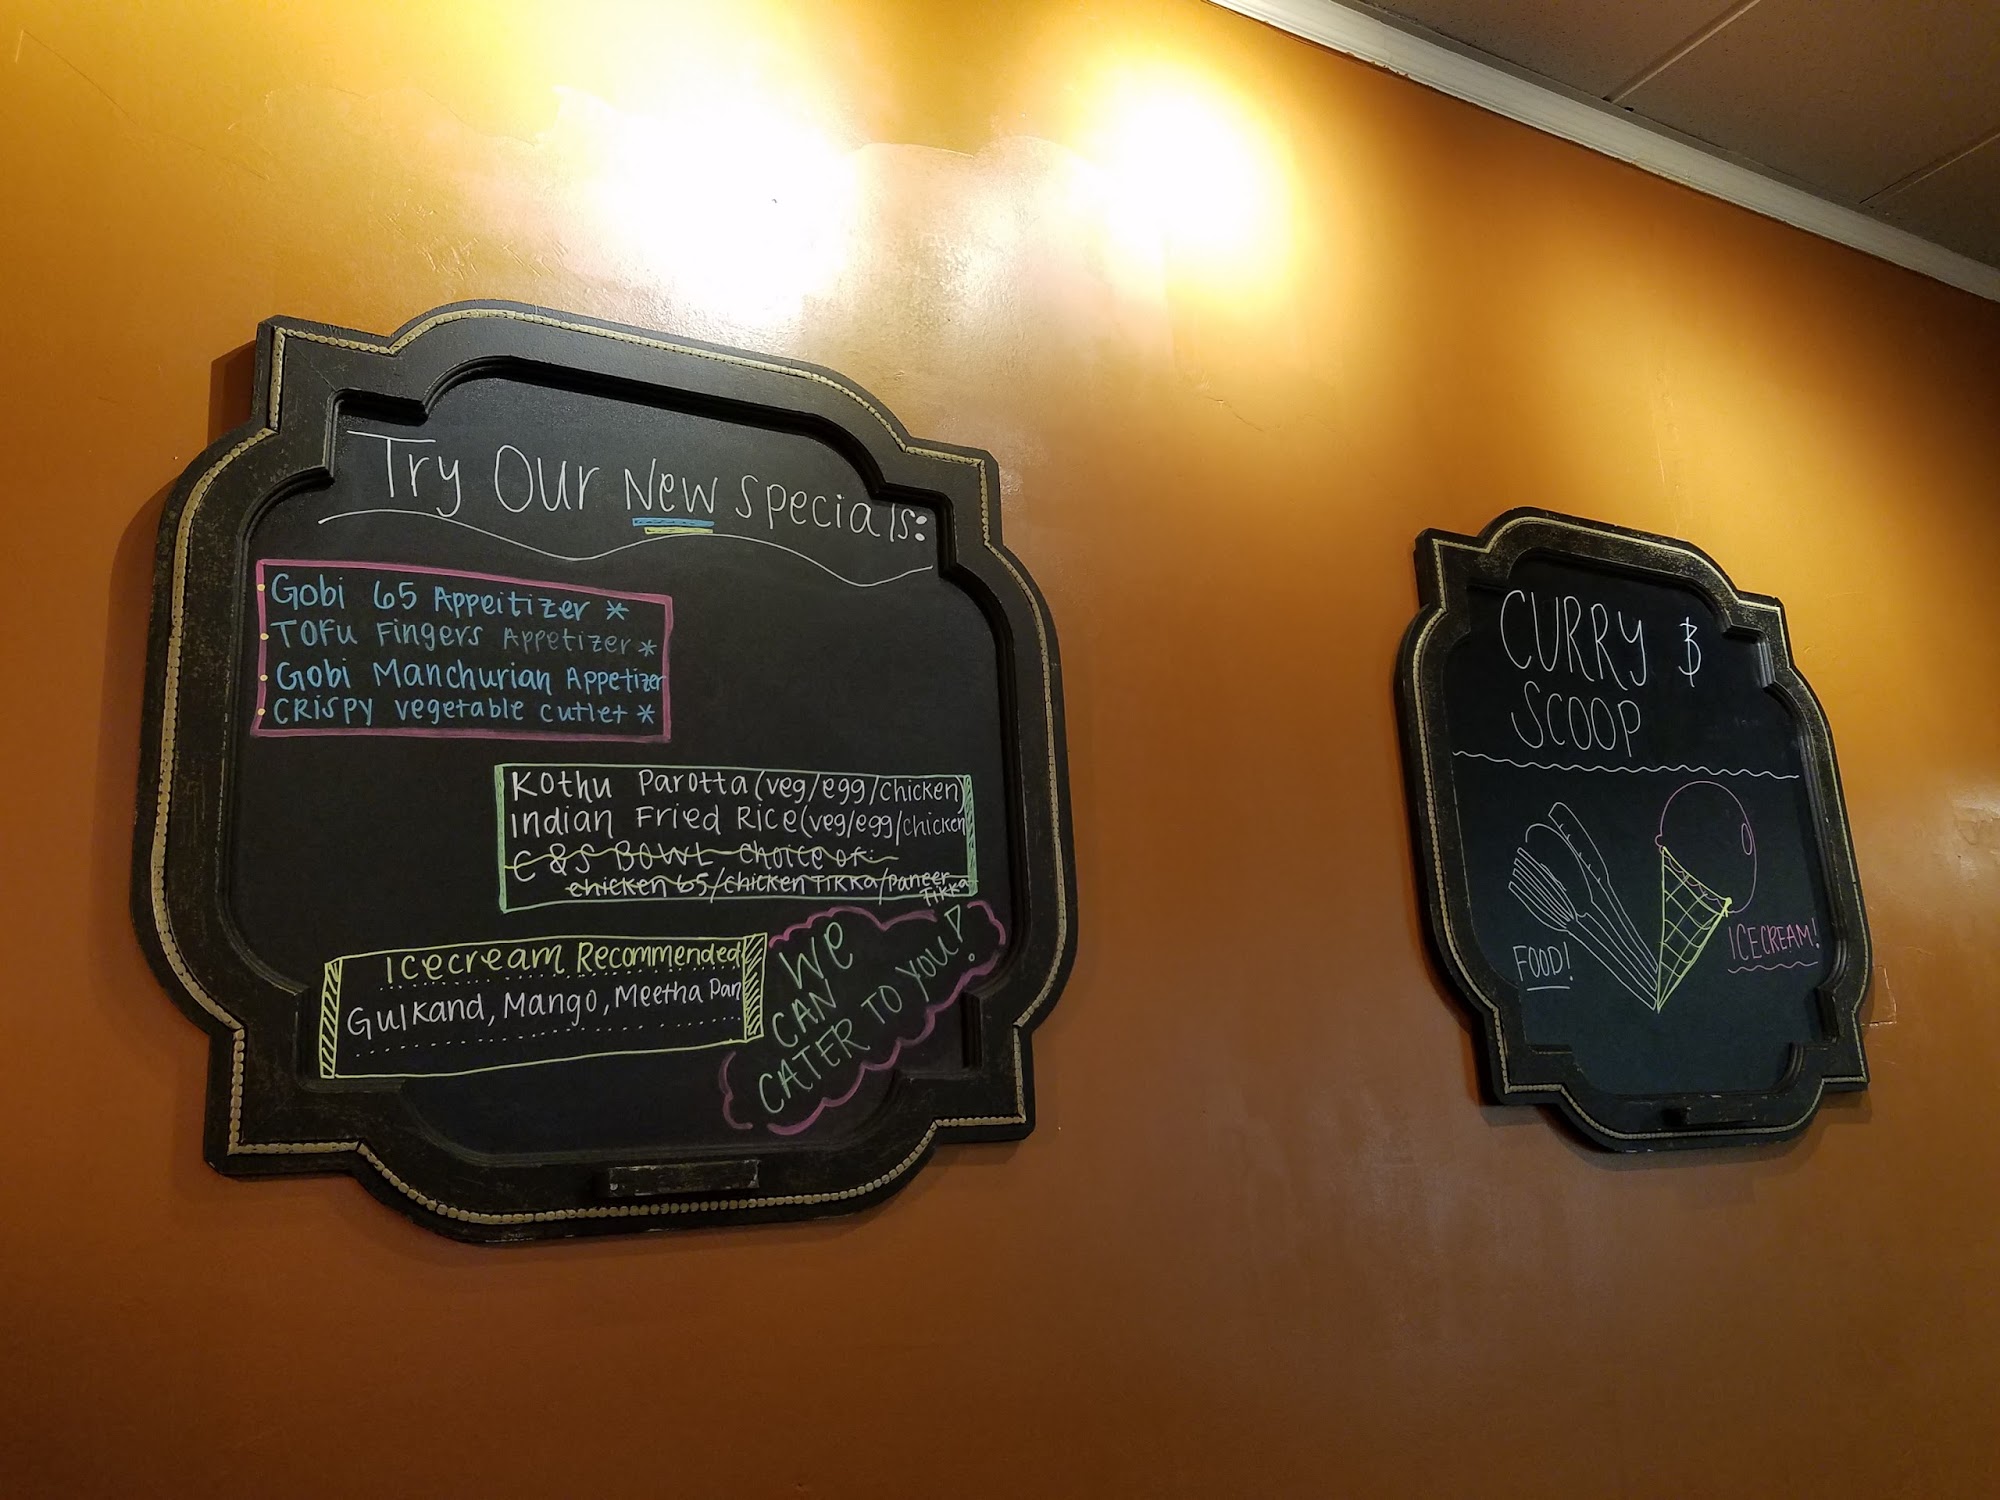 Try Our New Specials:
Gobi 65 Appeitizer *
Tofu Fingers Appetizer *
Gobi Manchurian Appetizer
Crispy vegetable cutlet *
Kothu Parotta (veg/egg/chicken)
Indian Fried Rice (veg/egg/chicken
C & S BOWL choice of:
chicken 65/chicken Tikka/paneer
Tikka
Icecream Recommended
Gulkand, Mango, Meetha Pan
WE
CAN
CATER TO YOU!
CURRY &
SCOOP
FOOD!
ICECREAM!